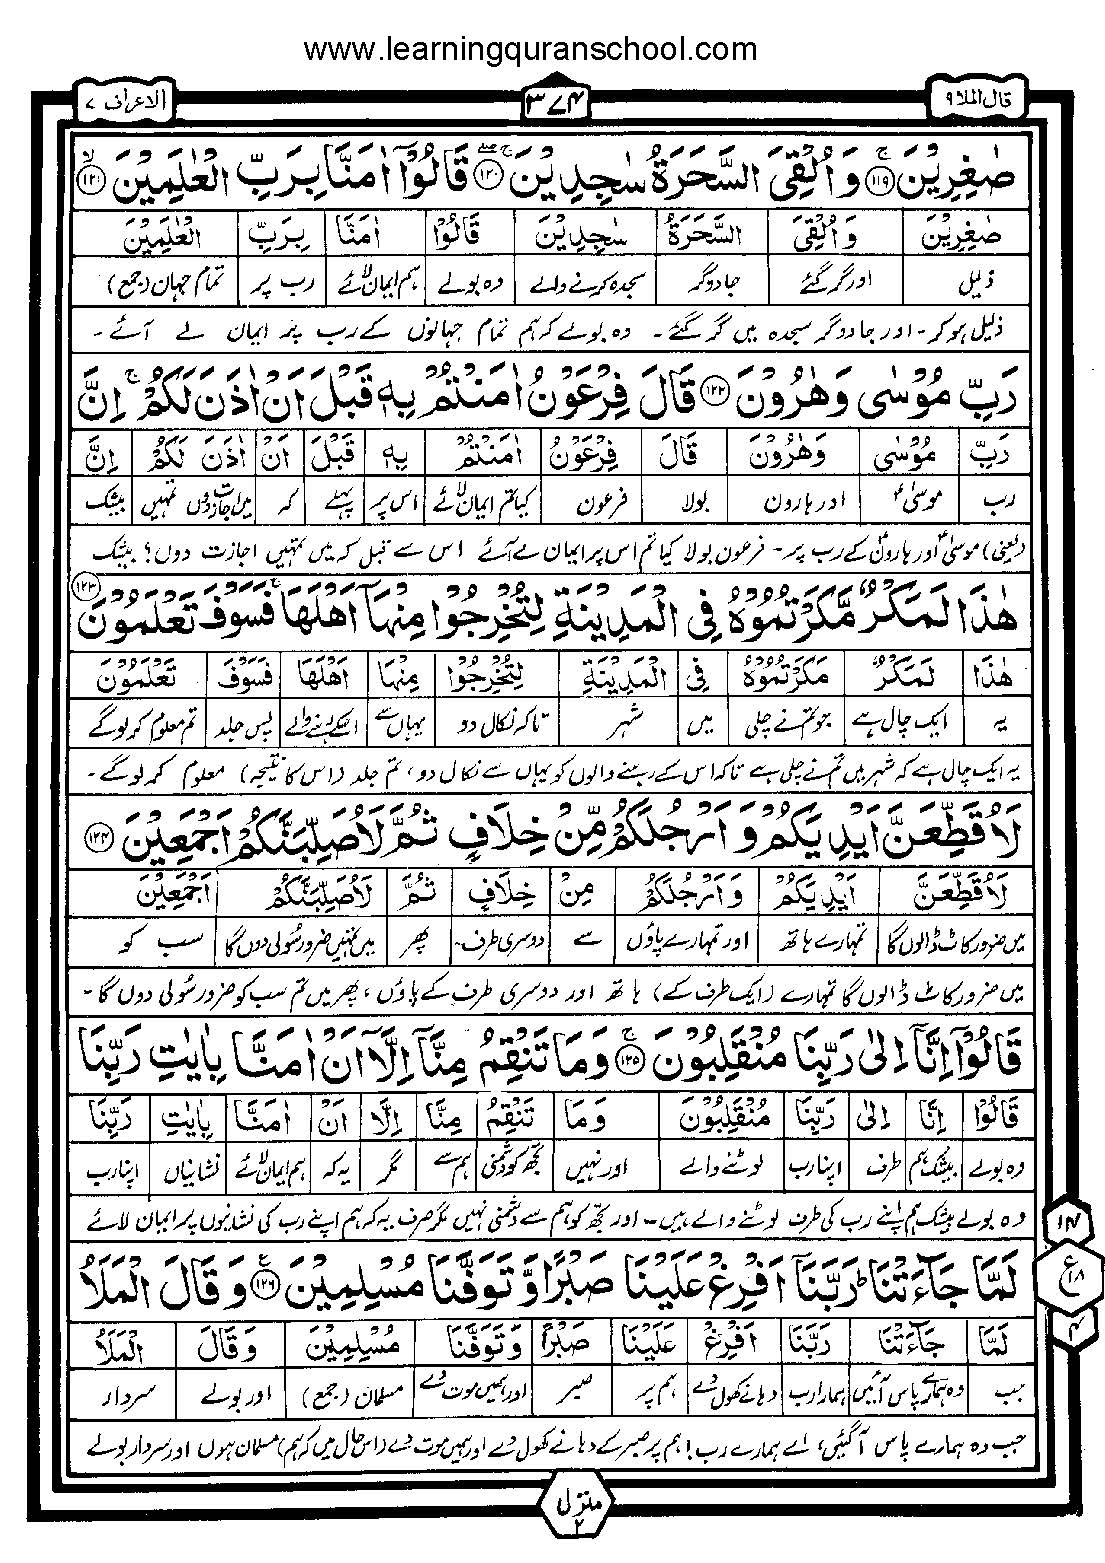 www.learningquranschool.com
قال الملا ۹
۳۷۴
الاعراف ۷
صٰغِرِیْنَ ﴿۱۱۹﴾ۚ وَاُلْقِیَ السَّحَرَةُ سٰجِدِیْنَ ﴿۱۲۰﴾ۚۖ قَالُوْۤا اٰمَنَّا بِرَبِّ الْعٰلَمِیْنَ ﴿۱۲۱﴾ۙ
صٰغِرِیْنَ وَاُلْقِیَ السَّحَرَةُ سٰجِدِیْنَ قَالُوْا اٰمَنَّا بِرَبِّ الْعٰلَمِیْنَ
ذلیل اور گر گئے جادوگر سجدہ کرنے والے وہ بولے ہم ایمان لائے رب پر تمام جہان (جمع)
ذلیل ہو کر۔ اور جادوگر سجدہ میں گر گئے۔ وہ بولے کہ ہم تمام جہانوں کے رب پر ایمان لے آئے۔
رَبِّ مُوْسٰی وَهٰرُوْنَ ﴿۱۲۲﴾ قَالَ فِرْعَوْنُ اٰمَنْتُمْ بِهٖ قَبْلَ اَنْ اٰذَنَ لَكُمْ ۚ اِنَّ
رَبِّ مُوْسٰی وَهٰرُوْنَ قَالَ فِرْعَوْنُ اٰمَنْتُمْ بِهٖ قَبْلَ اَنْ اٰذَنَ لَكُمْ اِنَّ
رب موسیٰؑ اور ہارون بولا فرعون کیا تم ایمان لائے اس پر پہلے کہ میں اجازت دوں تمہیں بیشک
(یعنی) موسیٰؑ اور ہارونؑ کے رب پر۔ فرعون بولا کیا تم اس پر ایمان لے آئے اس سے قبل کہ میں تمہیں اجازت دوں؟ بیشک
هٰذَا لَمَكْرٌ مَّكَرْتُمُوْهُ فِی الْمَدِیْنَةِ لِتُخْرِجُوْا مِنْهَاۤ اَهْلَهَا ۚ فَسَوْفَ تَعْلَمُوْنَ ﴿۱۲۳﴾
هٰذَا لَمَكْرٌ مَكَرْتُمُوْهُ فِی الْمَدِیْنَةِ لِتُخْرِجُوْا مِنْهَا اَهْلَهَا فَسَوْفَ تَعْلَمُوْنَ
یہ ایک چال ہے جو تم نے چلی میں شہر تاکہ نکال دو یہاں سے اسکے رہنے والے پس جلد تم معلوم کر لو گے
یہ ایک چال ہے کہ شہر میں تم نے چلی ہے تاکہ اس کے رہنے والوں کو یہاں سے نکال دو، تم جلد (اس کا نتیجہ) معلوم کر لو گے۔
لَاُقَطِّعَنَّ اَیْدِیَكُمْ وَاَرْجُلَكُمْ مِّنْ خِلَافٍ ثُمَّ لَاُصَلِّبَنَّكُمْ اَجْمَعِیْنَ ﴿۱۲۴﴾
لَاُقَطِّعَنَّ اَیْدِیَكُمْ وَاَرْجُلَكُمْ مِنْ خِلَافٍ ثُمَّ لَاُصَلِّبَنَّكُمْ اَجْمَعِیْنَ
میں ضرور کاٹ ڈالوں گا تمہارے ہاتھ اور تمہارے پاؤں سے دوسری طرف۔ پھر میں تمہیں ضرور سُولی دوں گا سب کو
میں ضرور کاٹ ڈالوں گا تمہارے (ایک طرف کے) ہاتھ اور دوسری طرف کے پاؤں، پھر میں تم سب کو ضرور سُولی دوں گا۔
قَالُوْۤا اِنَّاۤ اِلٰی رَبِّنَا مُنْقَلِبُوْنَ ﴿۱۲۵﴾ۚ وَمَا تَنْقِمُ مِنَّاۤ اِلَّاۤ اَنْ اٰمَنَّا بِاٰیٰتِ رَبِّنَا
قَالُوْا اِنَّا اِلٰی رَبِّنَا مُنْقَلِبُوْنَ وَمَا تَنْقِمُ مِنَّا اِلَّا اَنْ اٰمَنَّا بِاٰیٰتِ رَبِّنَا
وہ بولے بیشک ہم طرف اپنا رب لوٹنے والے اور نہیں تجھ کو دشمنی ہم سے مگر یہ کہ ہم ایمان لائے نشانیاں اپنا رب
وہ بولے بیشک ہم اپنے رب کی طرف لوٹنے والے ہیں۔ اور تجھ کو ہم سے دشمنی نہیں مگر صرف یہ کہ ہم اپنے رب کی نشانیوں پر ایمان لائے
لَمَّا جَآءَتْنَا ؕ رَبَّنَاۤ اَفْرِغْ عَلَیْنَا صَبْرًا وَّتَوَفَّنَا مُسْلِمِیْنَ ﴿۱۲۶﴾ۧ وَقَالَ الْمَلَاُ
لَمَّا جَآءَتْنَا رَبَّنَا اَفْرِغْ عَلَیْنَا صَبْرًا وَتَوَفَّنَا مُسْلِمِیْنَ وَقَالَ الْمَلَاُ
جب وہ ہمارے پاس آئیں ہمارا رب دہانے کھول دے ہم پر صبر اور ہمیں موت دے مسلمان (جمع) اور بولے سردار
جب وہ ہمارے پاس آ گئیں، اے ہمارے رب! ہم پر صبر کے دہانے کھول دے اور ہمیں موت دے (اس حال میں کہ ہم) مسلمان ہوں اور سردار بولے
۱۴
ع ۱۸
۴
منزل ۲